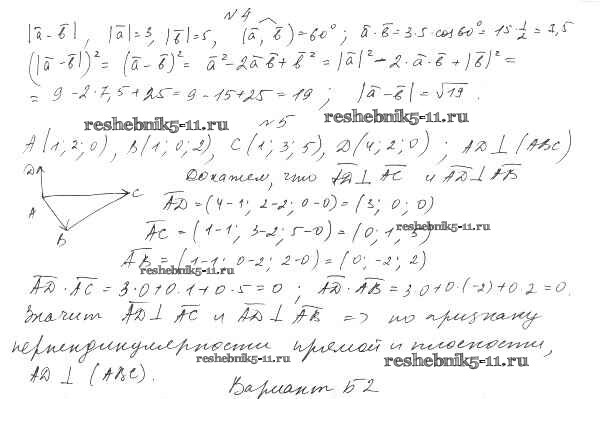 №4
|a̅-b̅|, |a̅|=3, |b̅|=5, (a̅, b̅)=60°; a̅·b̅=3·5·cos60°=15·1/2=7,5
(|a̅-b̅|)²=(a̅-b̅)²=a̅²-2a̅b̅+b̅²=|a̅|²-2·a̅·b̅+|b̅|²=
=9-2·7,5+25=9-15+25=19; |a̅-b̅|=√19.
reshebnik5-11.ru reshebnik5-11.ru
№5
A(1;2;0), B(1;0;2), C(1;3;5), D(4;2;0); AD⊥(ABC)
D
A
B
C
Докажем, что A̅D̅⊥A̅C̅ и A̅D̅⊥A̅B̅
A̅D̅=(4-1; 2-2; 0-0)=(3; 0; 0)
A̅C̅=(1-1; 3-2; 5-0)=(0; 1; 5)
reshebnik5-11.ru
A̅B̅=(1-1; 0-2; 2-0)=(0; -2; 2)
reshebnik5-11.ru
A̅D̅·A̅C̅=3·0+0·1+0·5=0; A̅D̅·A̅B̅=3·0+0·(-2)+0·2=0.
Значит A̅D̅⊥A̅C̅ и A̅D̅⊥A̅B̅ => по признаку
перпендикулярности прямой и плоскости,
reshebnik5-11.ru reshebnik5-11.ru
AD⊥(ABC).
Вариант Б2